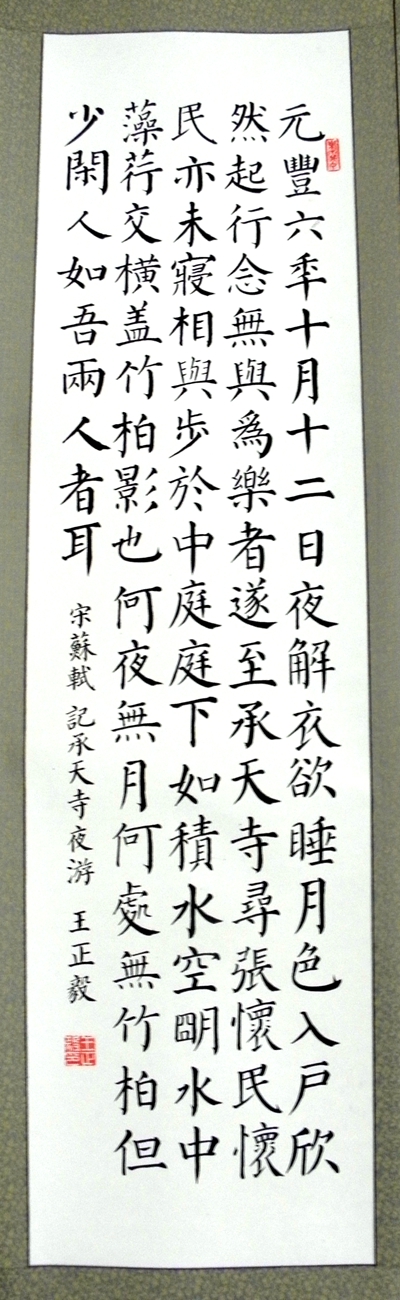 元豐六秊十月十二日夜解衣欲睡月色入戶欣
然起行念無與爲樂者遂至承天寺尋張懷民懷
民亦未寢相與步於中庭庭下如積水空朙水中
藻荇交橫盖竹柏影也何夜無月何處無竹柏但
少閑人如吾兩人者耳
宋蘇軾 記承天寺夜游 王正毅